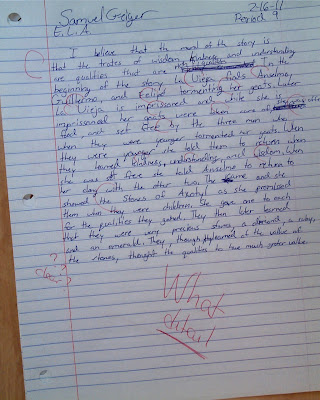 Samuel Geiger 2-16-11
E.L.A. Period 9
I believe that the moral of the story is
that the traites of wisdom, kindness, and understanding
are qualities that are In the
beginning of the story La Vieja finds Anselmo,
Guillermo, and Felipe tormenting her goats. Later
La Vieja is imprisoned and while she is
imprisoned her goats were taken care of
and set free by the three men who
when they were younger tormented her goats. When
they were younger she told them to return when
they learned kindness, understanding, and wisdom. When
she was set free she told Anselmo to return to
her day with the other two. The came and she
showed the Stones of as she promised
them when they were children. She gave one to each
for the qualities they gained. They then later learned
that they were very precious stones, a diamond, a ruby,
and an emerald. They, though they learned of the value of
the stones, thought the qualities to have much greater value.
?
?
?
What
detail